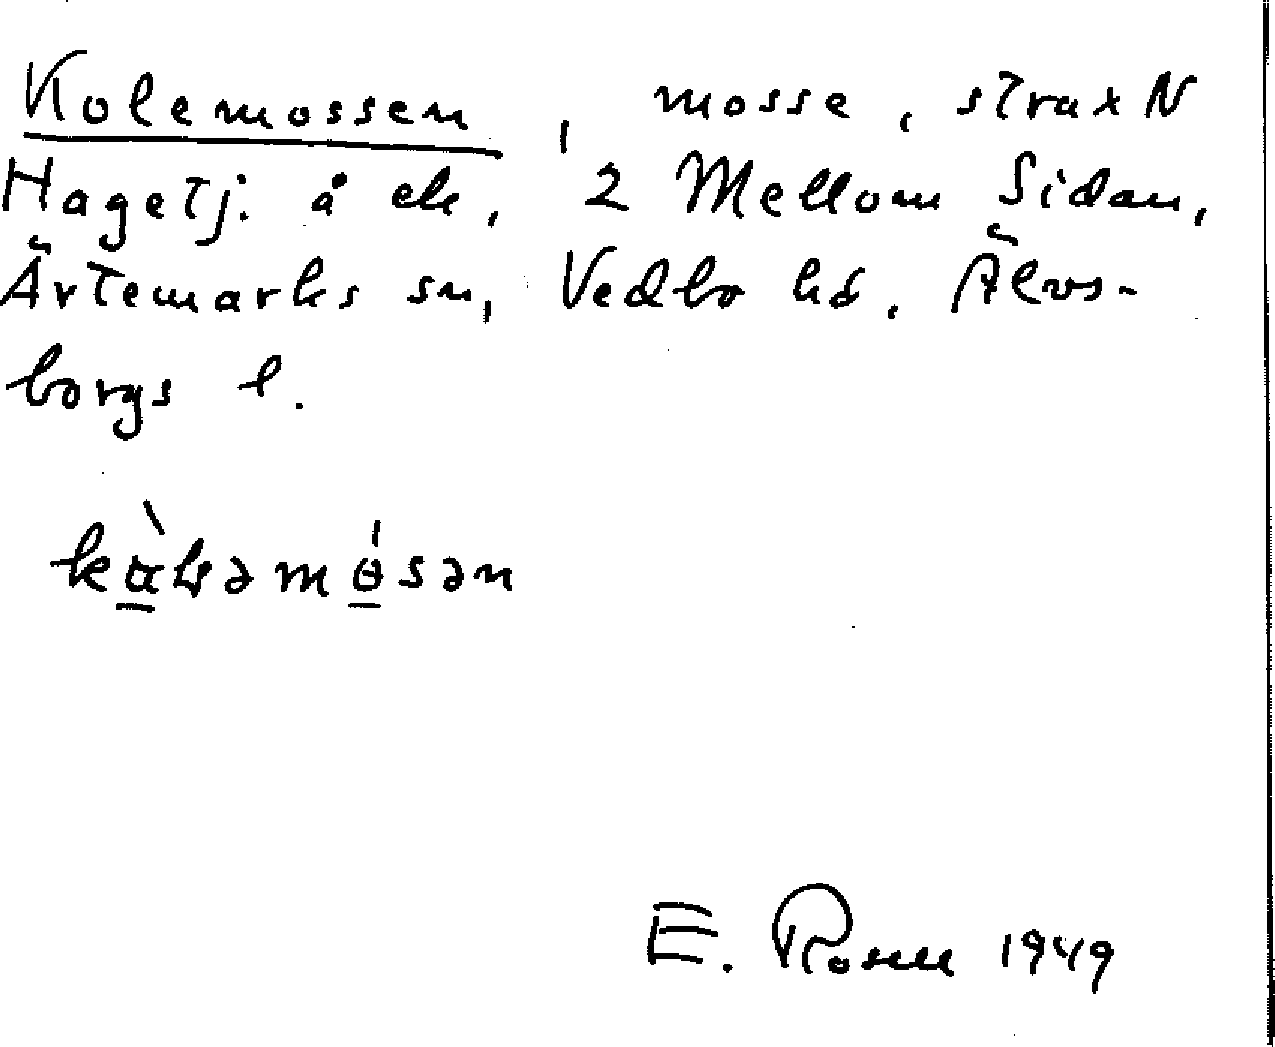 Kolemossen, mosse, strax N
Hagetj. å ek, 2 Mellom Sidan,
Ärtemarks sn, Vedbo hd, Älvs-
borgs l.
E. Rosell 1949